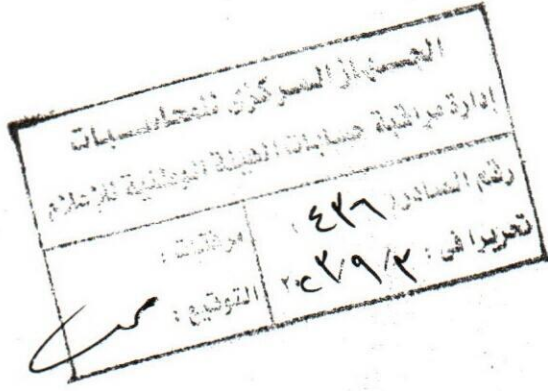 الجهاز المركزي للمحاسبات
إدارة مراقبة حسابات الهيئة الوطنية للإعلام
رقم الصادر: ٤٣٦
مرفقات:
تحريرا في: ٣/٩/٢٠٢٣
التوقيع: